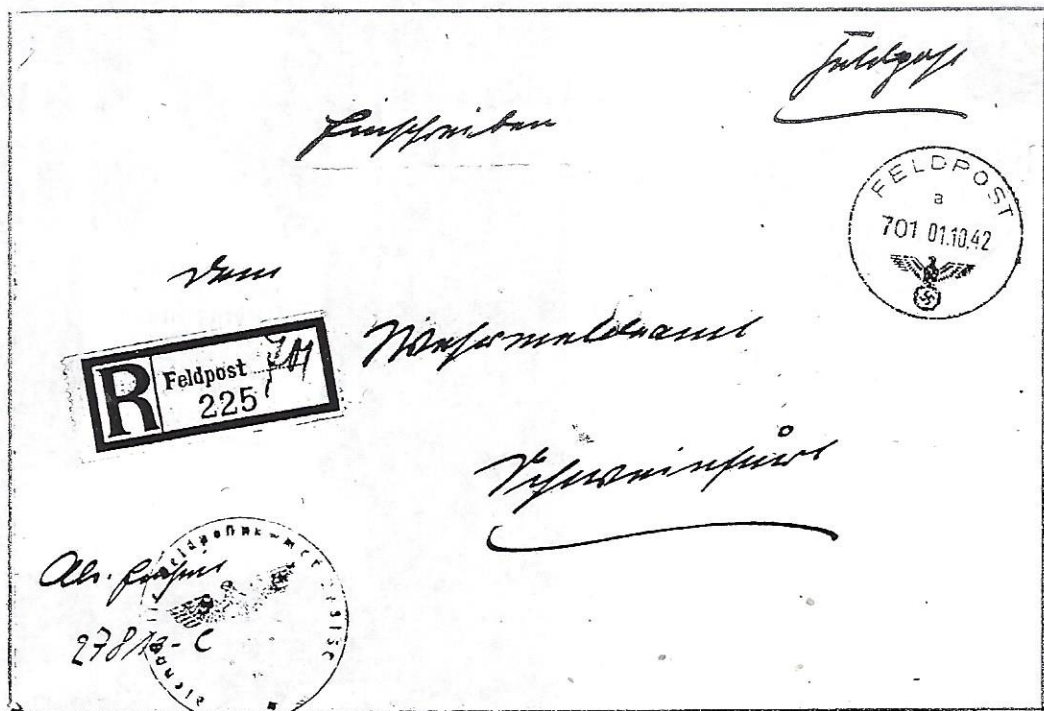 Feldpost
Einschreiben
FELDPOST
a
701 01.10.42
Dem
R Feldpost 701
225
Wehrmeldeamt
Schweinfurt
Abs. Einheit
27813-C